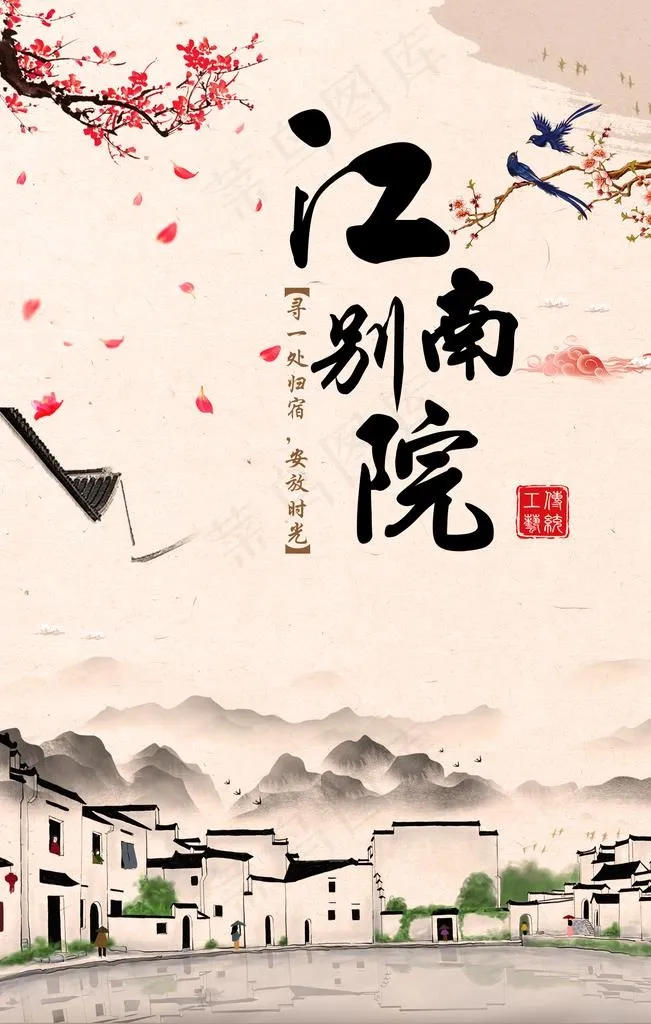 江南
别院
【寻一处归宿，安放时光】
傳統
工藝
菜鸟图库